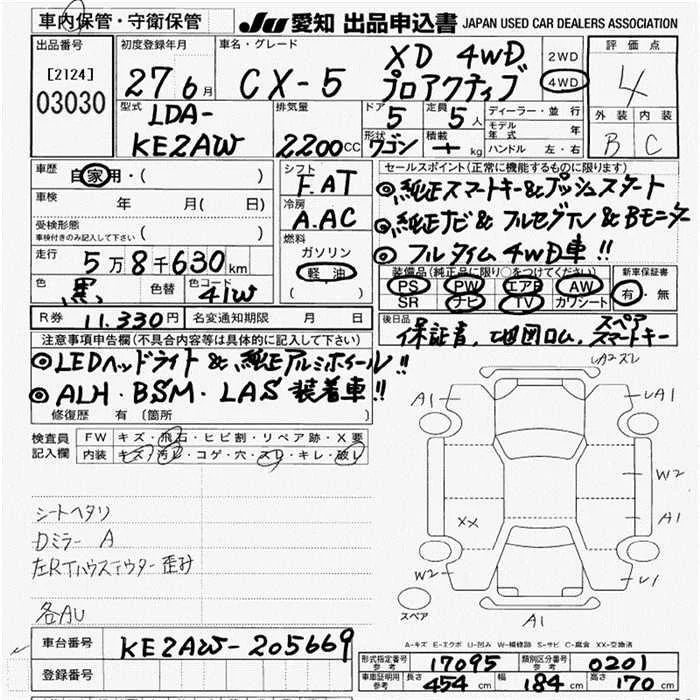 車内保管・守衛保管
JU 愛知 出品申込書 JAPAN USED CAR DEALERS ASSOCIATION
出品番号
[2124]
03030
初度登録年月
27 6月
車名・グレード
CX-5 XD 4WD プロアクティブ
2WD
4WD
評価点
4
外装 内装
B C
型式
LDA-
KE2AW
排気量
2200cc
ドア 5
定員 5人
形状 ワゴン
積載 kg
ディーラー・並行
モデル年式 年
ハンドル 左・右
車歴 自家用・( )
車検 年 月( 日)
受検形態
車検付きのみ記入して下さい ( )
走行 5万8千630km
色 黒 色替 色コード 41W
シフト
F.AT
冷房
A.AC
燃料
ガソリン
軽油
( )
セールスポイント(正常に機能するものに限ります)
◎純正スマートキー&プッシュスタート
◎純正ナビ&フルセグTV&Bモニター
◎フルタイム4WD車!!
装備品(純正品に限り○をつけてください)
PS PW エアB AW
SR ナビ TV カワシート
新車保証書
有・無
R券 11.330円 名変通知期限 月 日
後日品
保証書、地図ロム、スペアスマートキー
注意事項申告欄(不具合内容等は具体的に記入して下さい)
◎LEDヘッドライト&純正アルミホイール!!
◎ALH・BSM・LAS 装着車!!
修復歴 有 〔箇所 〕
検査員記入欄
FW キズ・飛石・ヒビ割・リペア跡・X要
内装 キズ・汚レ・コゲ・穴・スレ・キレ・破レ
シートヘタリ
Dミラー A
左RTハウスアウター歪み
各AU
A2ズレ
A1
UA1
W2
A1
XX
W2
U1
スペア
A1
A-キズ E-エクボ U-凹み W-補修跡 S-サビ C-腐食 XX-交換済
車台番号 KE2AW-205669
登録番号
形式指定番号 参考 17095 類別区分番号 参考 0201
車車証明用 参考 長さ 454cm 幅 184cm 高さ 170cm